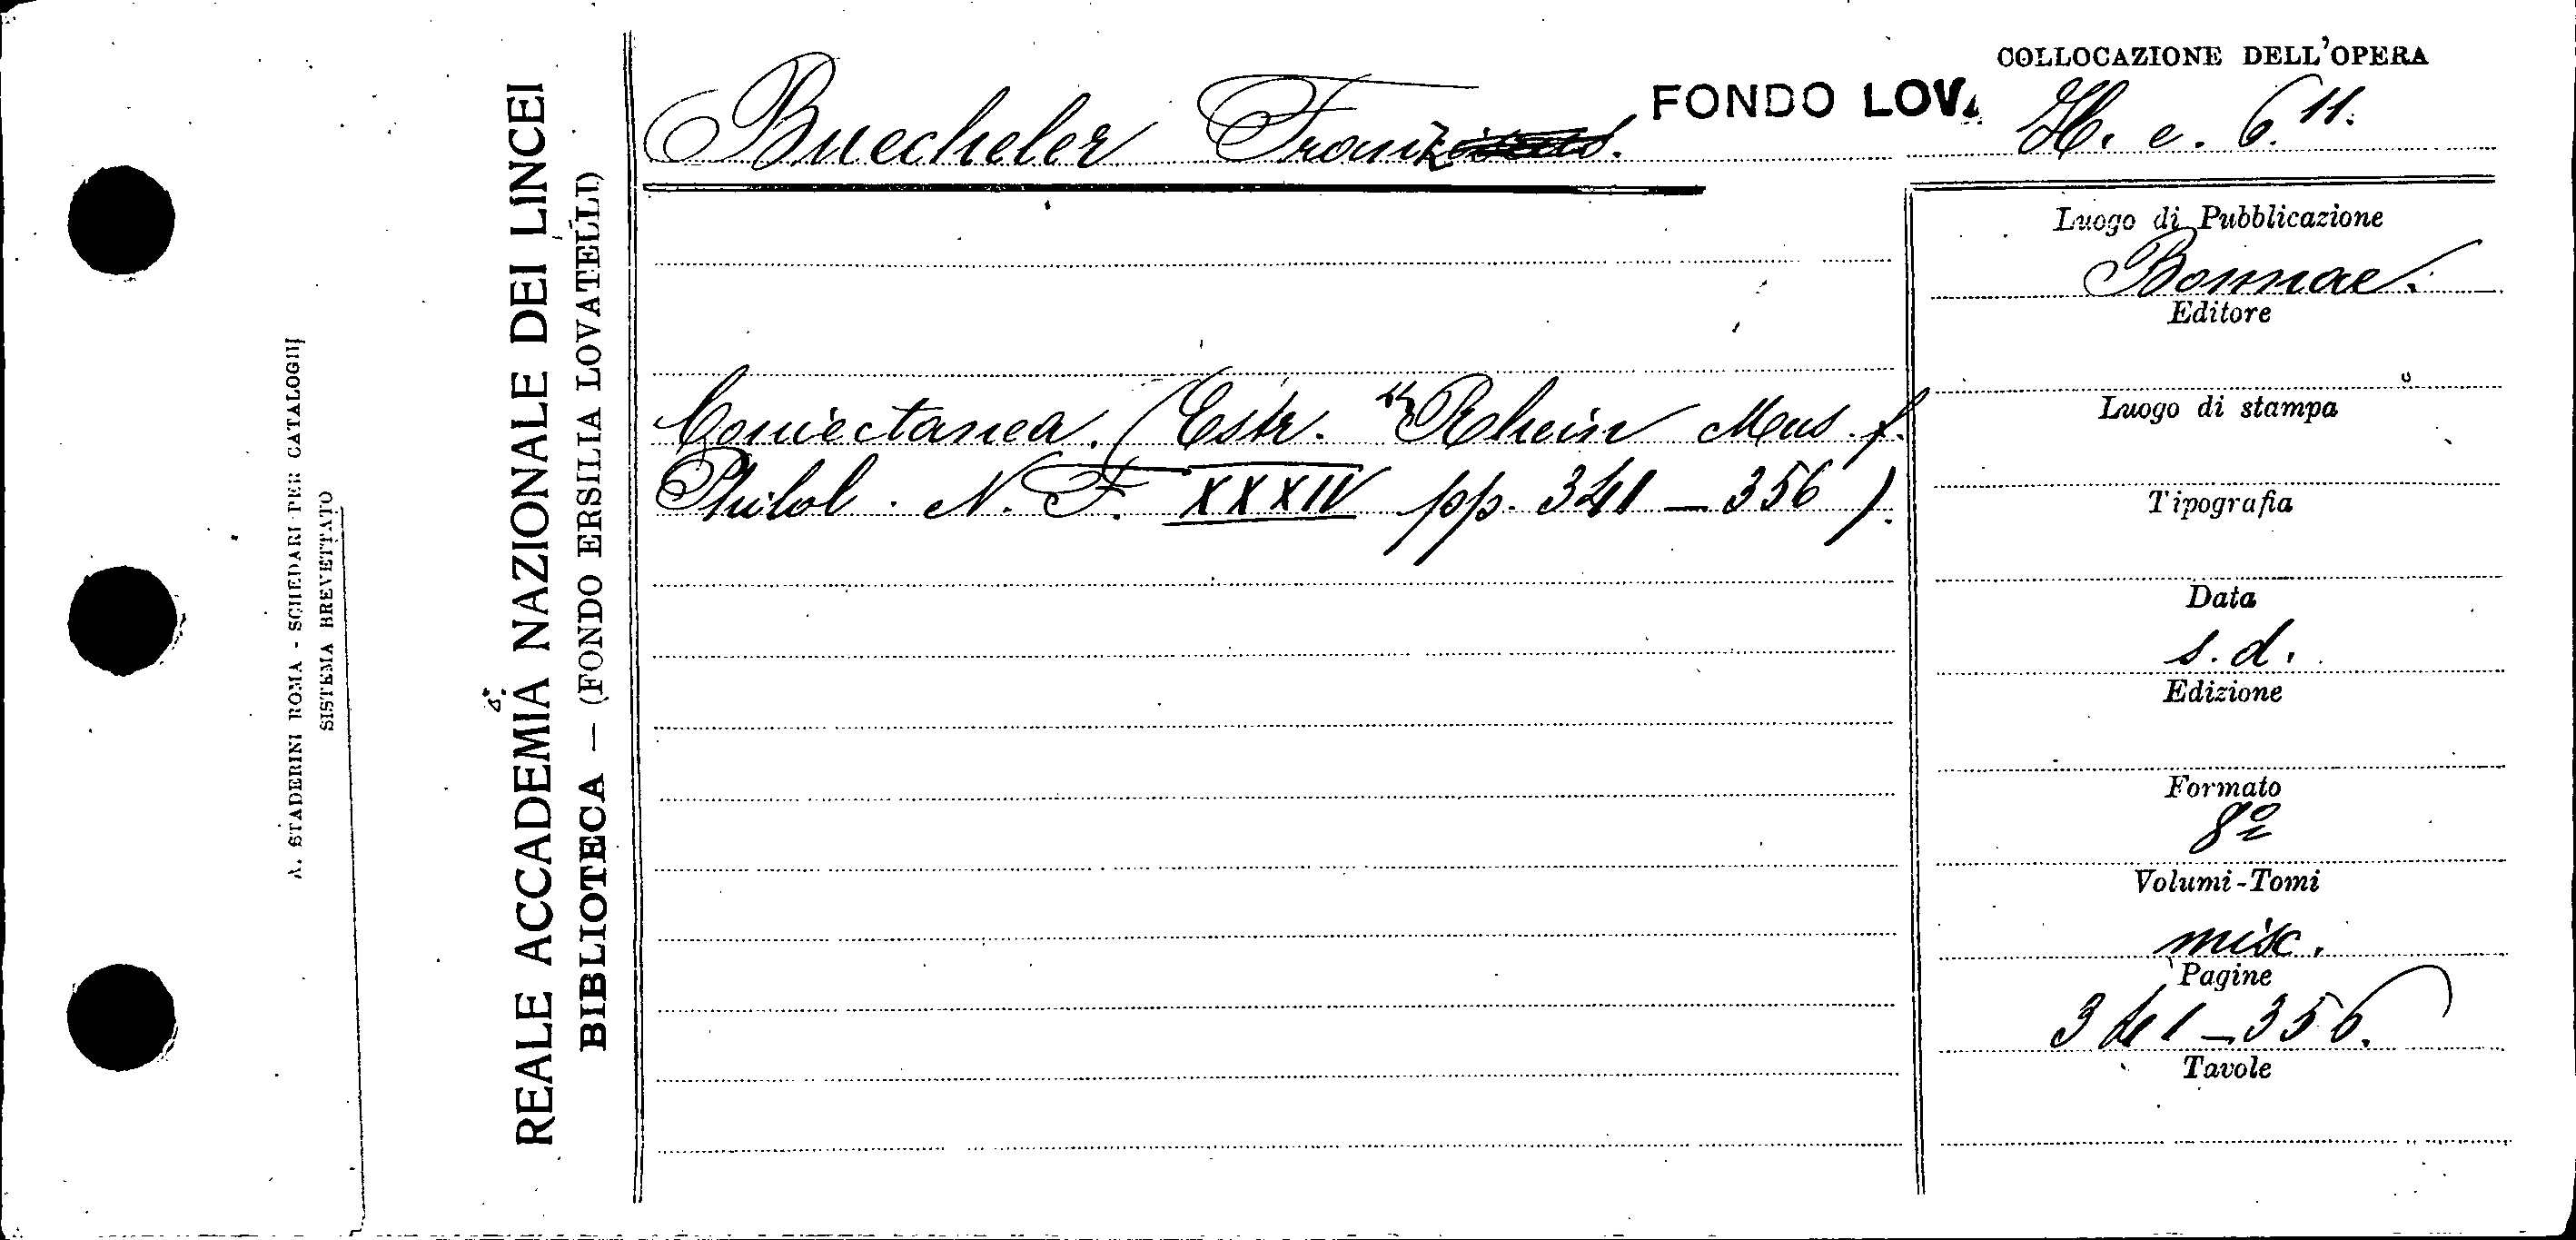 COLLOCAZIONE DELL'OPERA
Buecheler Franz.
FONDO LOV
H. e. 6.11.
Luogo di Pubblicazione
Bonnae.
Editore
Coniectanea. (Estr. Rhein Mus. f.
Philol. N. F. XXXIV pp. 341–356).
Luogo di stampa
Tipografia
Data
s. d.
Edizione
Formato
8º
Volumi-Tomi
misc.
Pagine
341–356.
Tavole
REALE ACCADEMIA NAZIONALE DEI LINCEI
BIBLIOTECA — (FONDO ERSILIA LOVATELLI)
A. STADERINI ROMA - SCHEDARI PER CATALOGHI
SISTEMA BREVETTATO